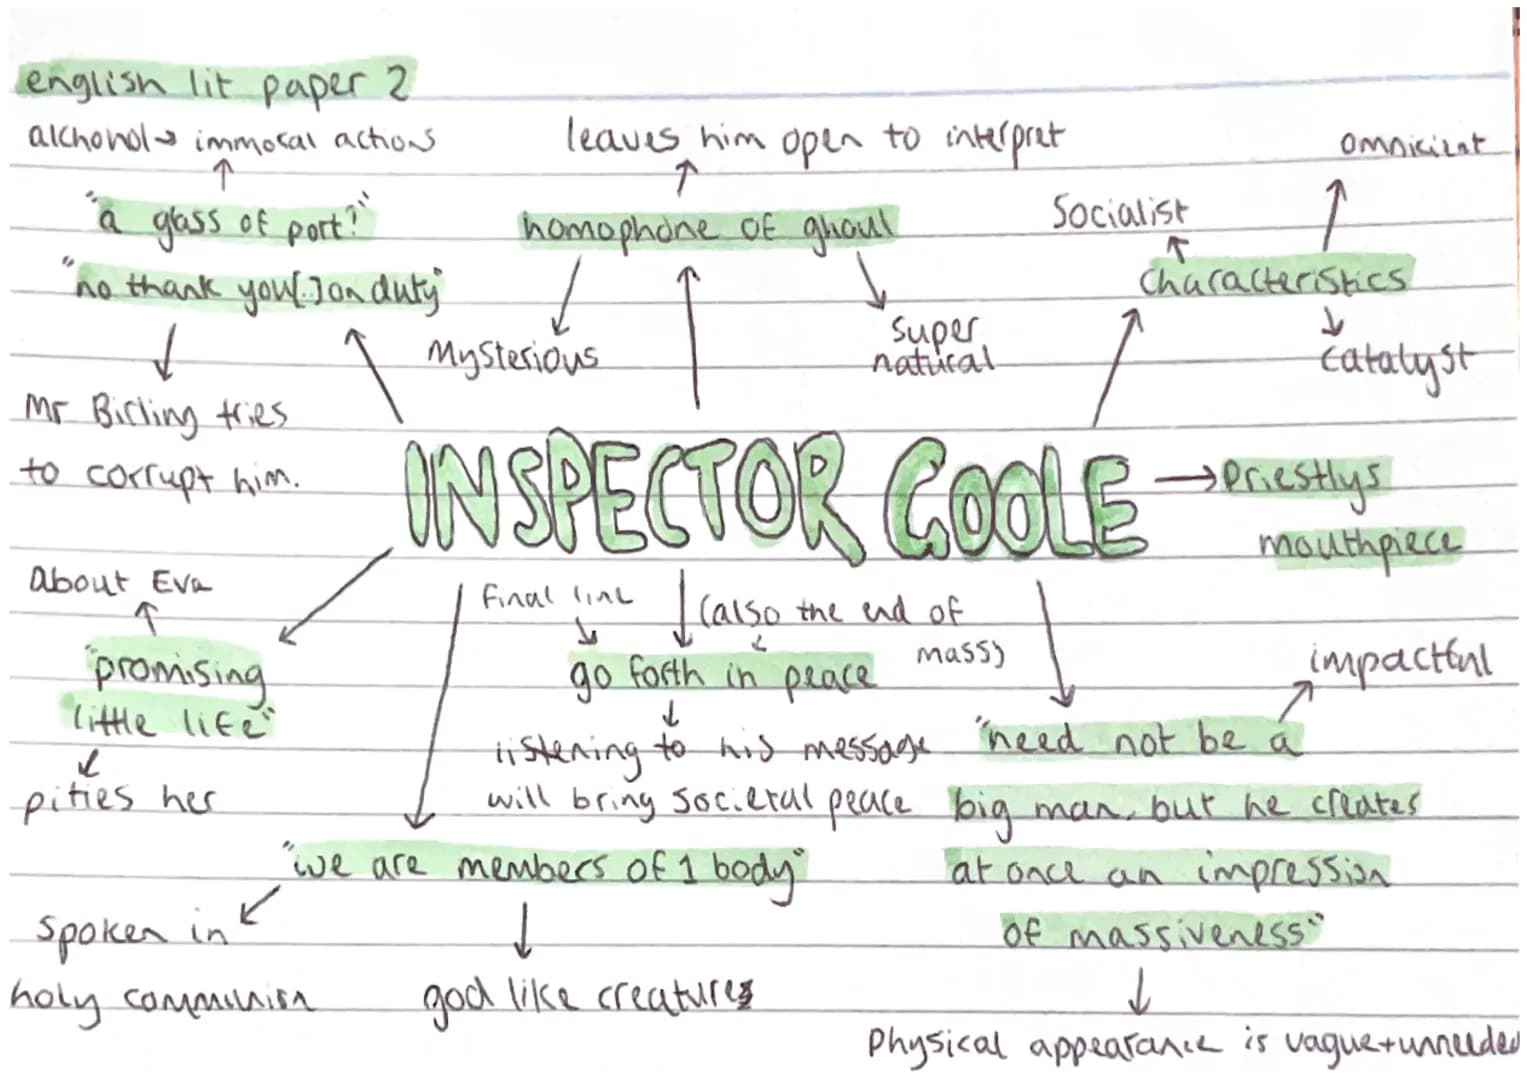 english lit paper 2
alchohol → immoral actions
↑
"a glass of port?"
"no thank you[..] on duty"
↓
Mr Birling tries
to corrupt him.
leaves him open to interpret
↑
homophone of ghoul
Mysterious
super
natural
omnicient
Socialist
characteristics
catalyst
INSPECTOR GOOLE
→ Priestlys
mouthpiece
About Eva
↑
"promising
little life"
pities her
final line
(also the end of
mass)
go forth in peace
↓
listening to his message
will bring societal peace
"we are members of 1 body"
spoken in
holy communion
↓
god like creatures
impactful
"need not be a
big man, but he creates
at once an impression
of massiveness"
↓
Physical appearance is vague+unneeded